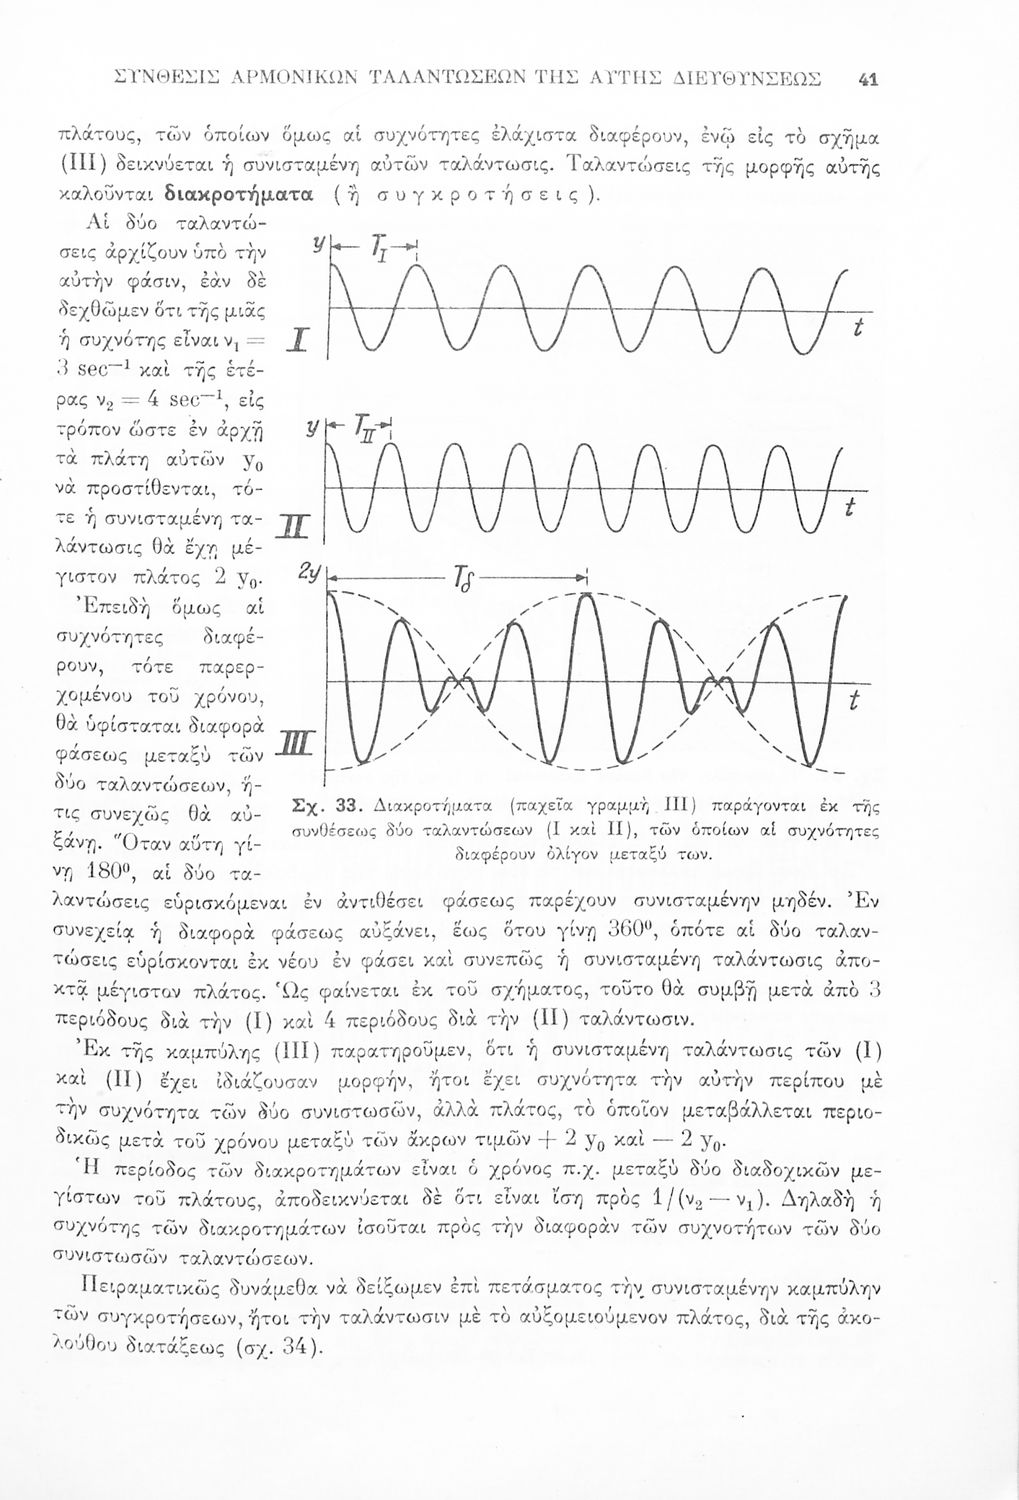 ΣΥΝΘΕΣΙΣ ΑΡΜΟΝΙΚΩΝ ΤΑΛΑΝΤΩΣΕΩΝ ΤΗΣ ΑΥΤΗΣ ΔΙΕΥΘΥΝΣΕΩΣ 41
πλάτους, τῶν ὁποίων ὅμως αἱ συχνότητες ἐλάχιστα διαφέρουν, ἐνῷ εἰς τὸ σχῆμα
(III) δεικνύεται ἡ συνισταμένη αὐτῶν ταλάντωσις. Ταλαντώσεις τῆς μορφῆς αὐτῆς
καλοῦνται διακροτήματα (ἢ συγκροτήσεις).
Αἱ δύο ταλαντώ-
σεις ἀρχίζουν ὑπὸ τὴν
αὐτὴν φάσιν, ἐὰν δὲ
δεχθῶμεν ὅτι τῆς μιᾶς
ἡ συχνότης εἶναι ν₁ =
3 sec⁻¹ καὶ τῆς ἑτέ-
ρας ν₂ = 4 sec⁻¹, εἰς
τρόπον ὥστε ἐν ἀρχῇ
τὰ πλάτη αὐτῶν y₀
νὰ προστίθενται, τό-
τε ἡ συνισταμένη τα-
λάντωσις θὰ ἔχῃ μέ-
γιστον πλάτος 2 y₀.
Ἐπειδὴ ὅμως αἱ
συχνότητες διαφέ-
ρουν, τότε παρερ-
χομένου τοῦ χρόνου,
θὰ ὑφίσταται διαφορὰ
φάσεως μεταξὺ τῶν
δύο ταλαντώσεων, ἥ-
τις συνεχῶς θὰ αὐ-
ξάνῃ. Ὅταν αὕτη γί-
νῃ 180⁰, αἱ δύο τα-
y T_I
I t
y T_II
II t
2y T_δ
III t
Σχ. 33. Διακροτήματα (παχεῖα γραμμὴ III) παράγονται ἐκ τῆς
συνθέσεως δύο ταλαντώσεων (I καὶ II), τῶν ὁποίων αἱ συχνότητες
διαφέρουν ὀλίγον μεταξύ των.
λαντώσεις εὑρισκόμεναι ἐν ἀντιθέσει φάσεως παρέχουν συνισταμένην μηδέν. Ἐν
συνεχείᾳ ἡ διαφορὰ φάσεως αὐξάνει, ἕως ὅτου γίνῃ 360⁰, ὁπότε αἱ δύο ταλαν-
τώσεις εὑρίσκονται ἐκ νέου ἐν φάσει καὶ συνεπῶς ἡ συνισταμένη ταλάντωσις ἀπο-
κτᾷ μέγιστον πλάτος. Ὡς φαίνεται ἐκ τοῦ σχήματος, τοῦτο θὰ συμβῇ μετὰ ἀπὸ 3
περιόδους διὰ τὴν (I) καὶ 4 περιόδους διὰ τὴν (II) ταλάντωσιν.
Ἐκ τῆς καμπύλης (III) παρατηροῦμεν, ὅτι ἡ συνισταμένη ταλάντωσις τῶν (I)
καὶ (II) ἔχει ἰδιάζουσαν μορφήν, ἤτοι ἔχει συχνότητα τὴν αὐτὴν περίπου μὲ
τὴν συχνότητα τῶν δύο συνιστωσῶν, ἀλλὰ πλάτος, τὸ ὁποῖον μεταβάλλεται περιο-
δικῶς μετὰ τοῦ χρόνου μεταξὺ τῶν ἄκρων τιμῶν + 2 y₀ καὶ — 2 y₀.
Ἡ περίοδος τῶν διακροτημάτων εἶναι ὁ χρόνος π.χ. μεταξὺ δύο διαδοχικῶν με-
γίστων τοῦ πλάτους, ἀποδεικνύεται δὲ ὅτι εἶναι ἴση πρὸς 1/(ν₂ — ν₁). Δηλαδὴ ἡ
συχνότης τῶν διακροτημάτων ἰσοῦται πρὸς τὴν διαφορὰν τῶν συχνοτήτων τῶν δύο
συνιστωσῶν ταλαντώσεων.
Πειραματικῶς δυνάμεθα νὰ δείξωμεν ἐπὶ πετάσματος τὴν συνισταμένην καμπύλην
τῶν συγκροτήσεων, ἤτοι τὴν ταλάντωσιν μὲ τὸ αὐξομειούμενον πλάτος, διὰ τῆς ἀκο-
λούθου διατάξεως (σχ. 34).